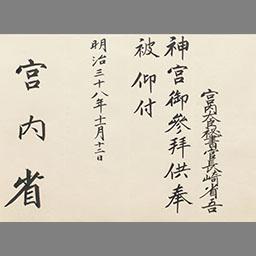 宮内大臣秘書官長崎省吾
神宮御參拜供奉
被仰付
明治三十八年十一月十二日
宮内省